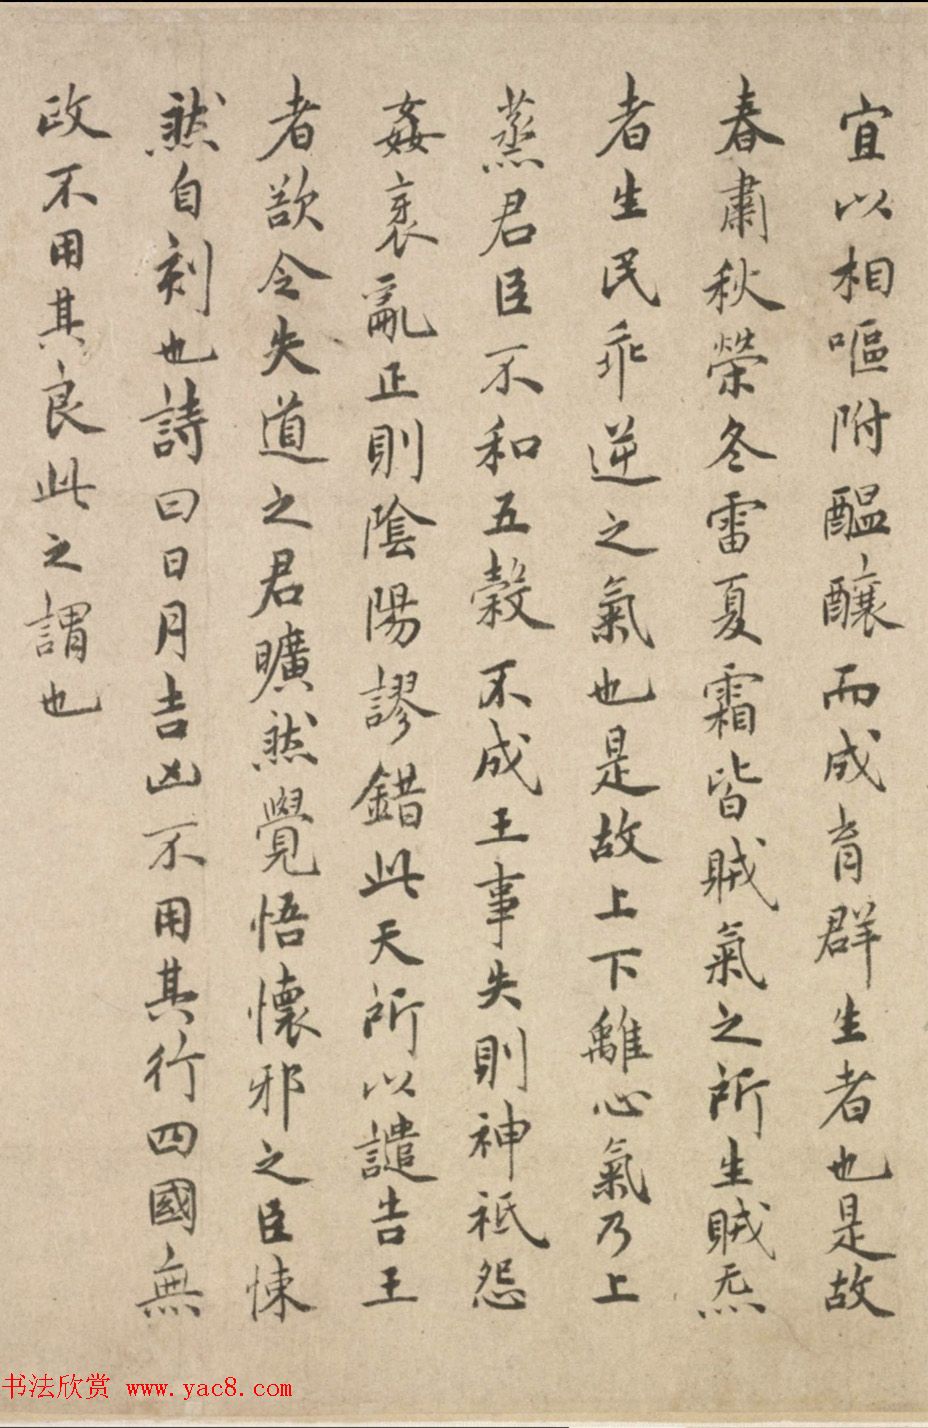 宜以相嘔附醖釀而成育群生者也是故
春肅秋榮冬雷夏霜皆賊氣之所生賊炁
者生民乖逆之氣也是故上下離心氣乃上
蒸君臣不和五穀不成王事失則神祇怨
姦衺亂正則陰陽謬錯此天所以譴告王
者欲令失道之君曠然覺悟懷邪之臣悚
然自刻也詩曰日月吉凶不用其行四國無
政不用其良此之謂也
书法欣赏 www.yac8.com